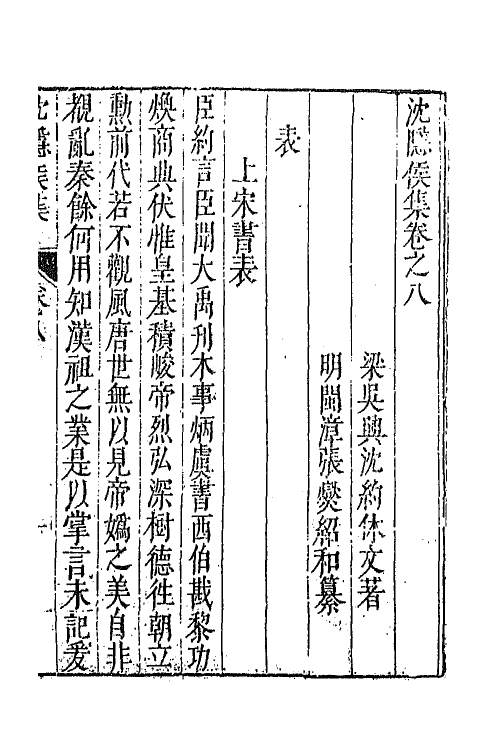 沈隱侯集卷之八
梁吳興沈約休文著
明閩漳張燮紹和纂
表
上宋書表
臣約言臣聞大禹刋木事炳虞書西伯戡黎功
煥商典伏惟皇基積峻帝烈弘深樹德往朝立
勳前代若不觀風唐世無以見帝嬀之美自非
覩亂秦餘何用知漢祖之業是以掌言未記爰
沈隱侯集
卷八